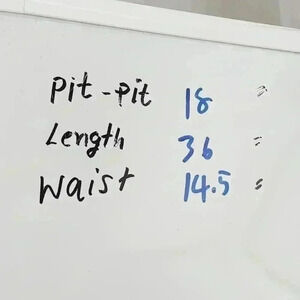 Pit - Pit 18 "
Length 36 "
Waist 14.5 "